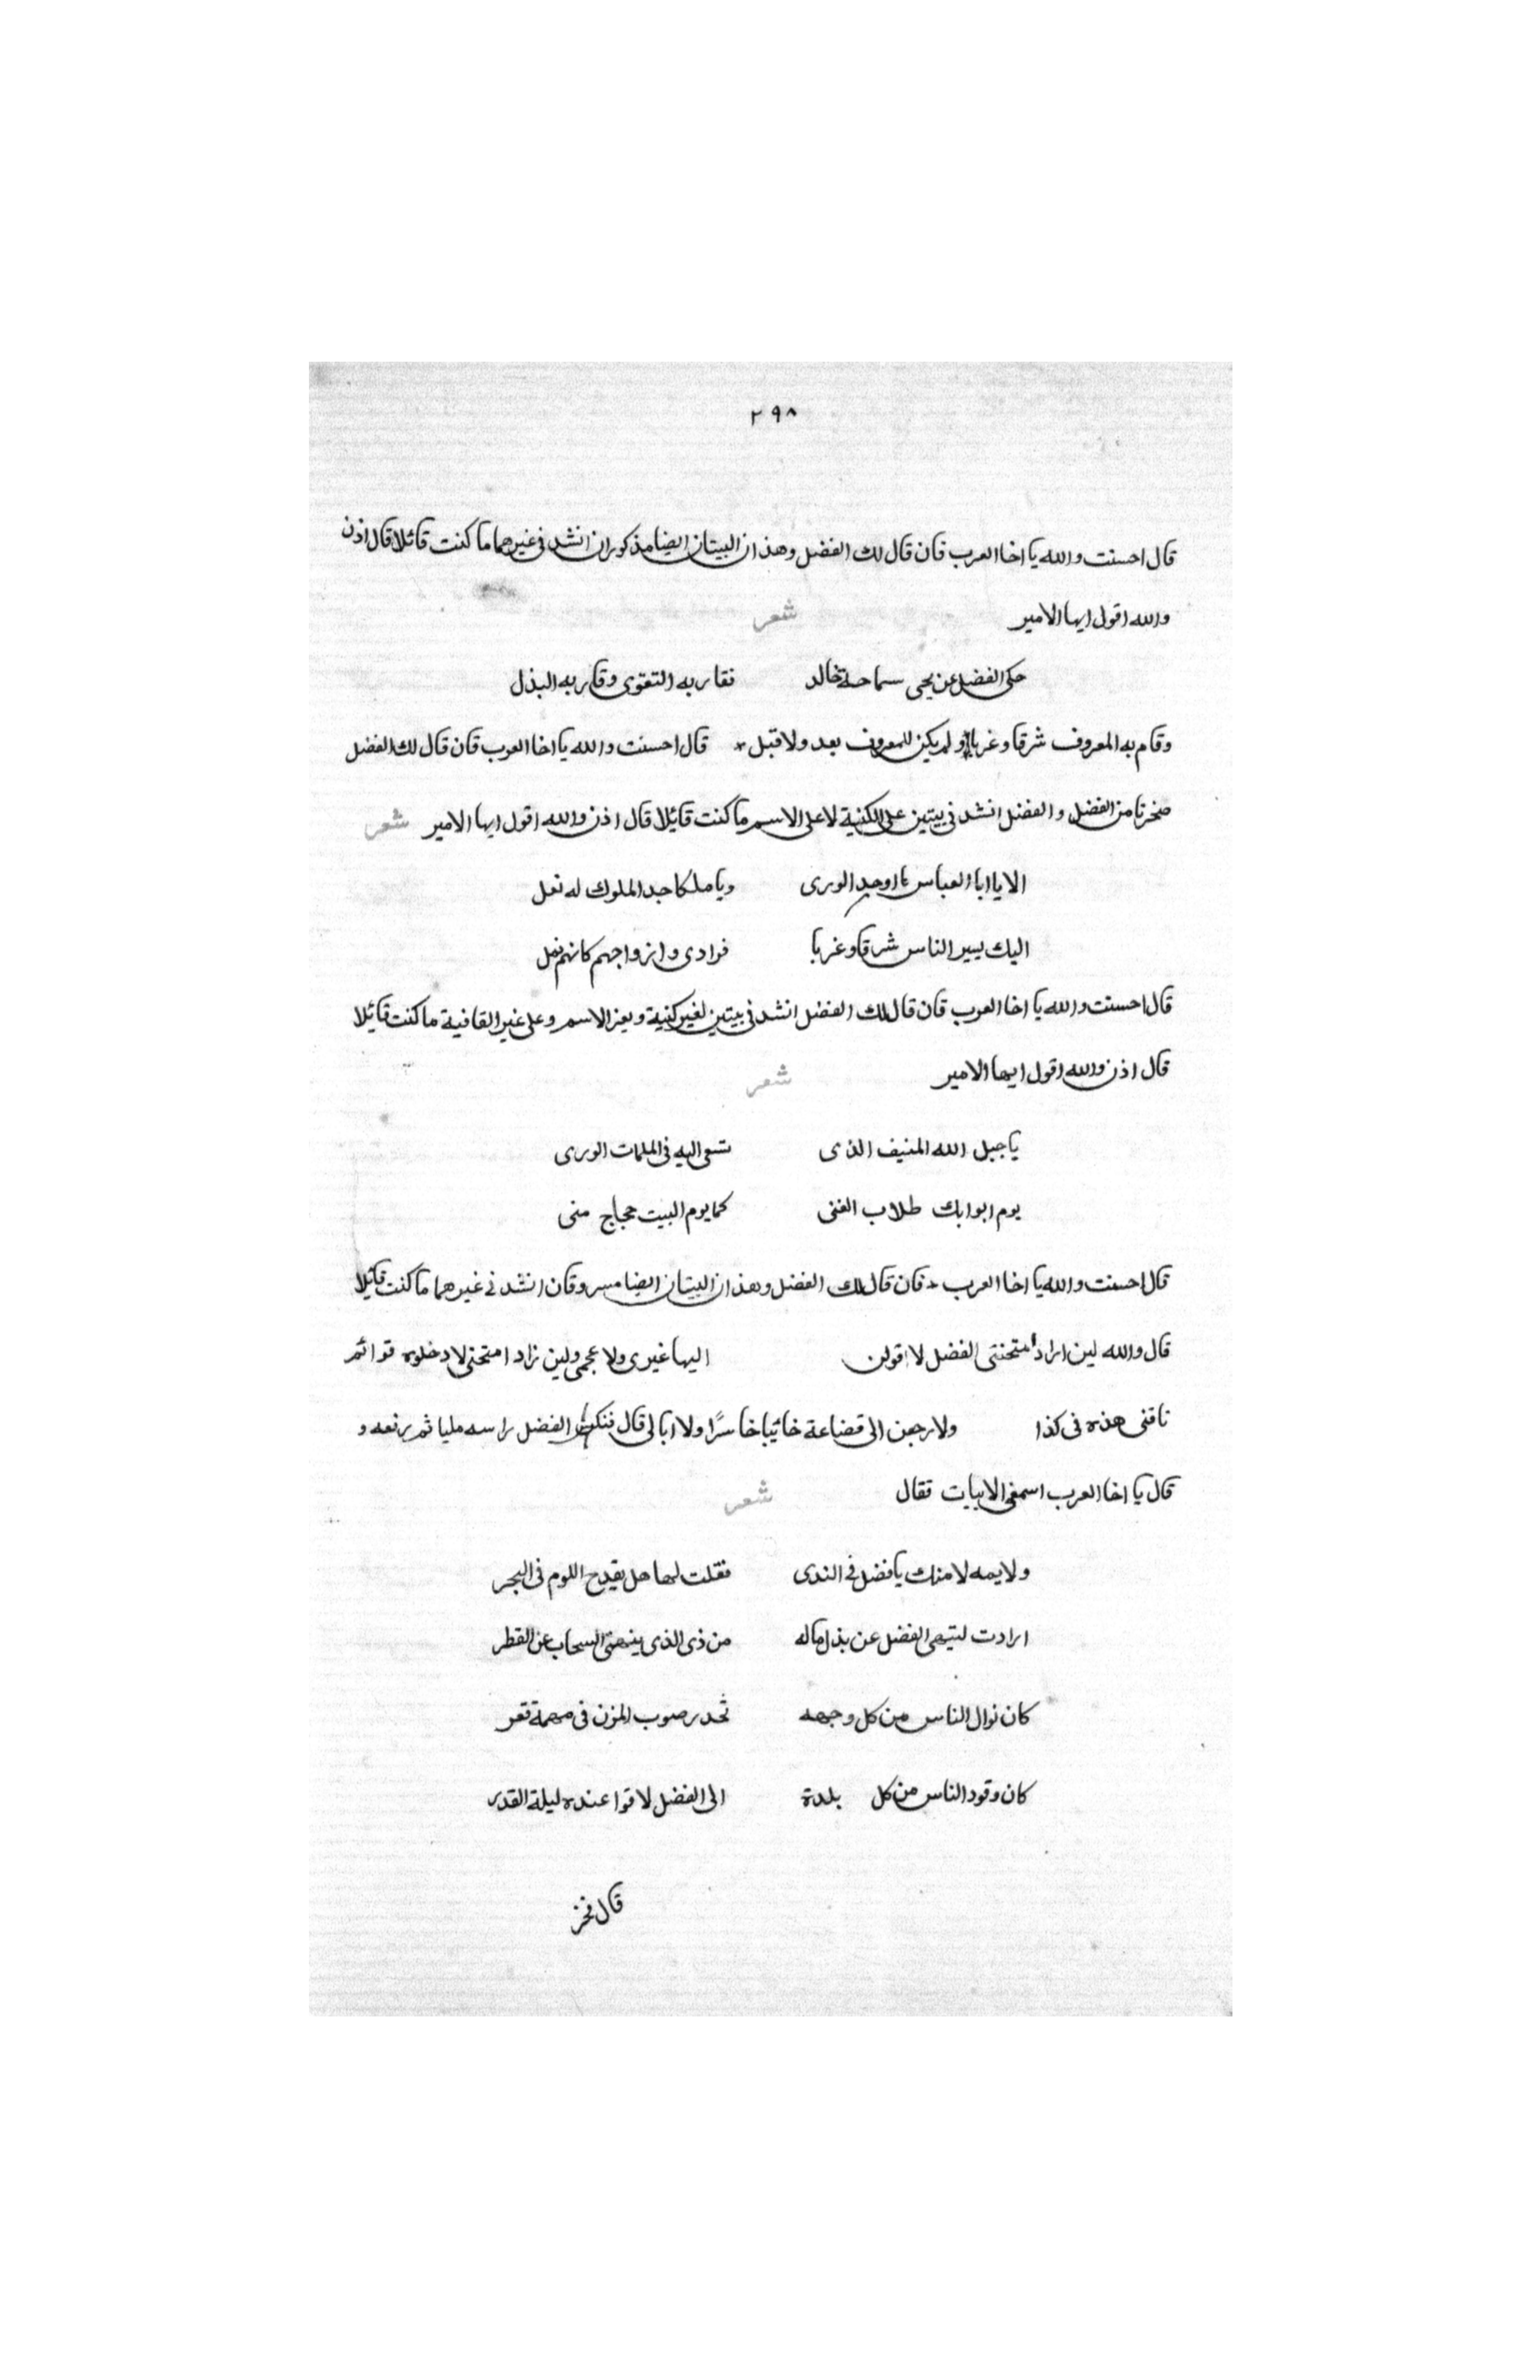 ٢٩٨
قال احسنت والله يا اخا العرب فان قال لك الفضل وهذان البيتان ايضا مذكوران انشدنى غيرهما ما كنت قائلا قال اذن
والله اقول ايها الامير شعر
حكى الفضل عن يحيى سماحة خالد فقاربه التقوى وقاربه البذل
وقام به المعروف شرقا وغربا ولم يكن للمعروف بعد ولا قبل قال احسنت والله يا اخا العرب فان قال لك الفضل
ضجرنا من الفضل والفضل انشدنى بيتين على الكنية لا على الاسم ما كنت قايلا قال اذن والله اقول ايها الامير شعر
الا يا ابا العباس يا اوحد الورى ويا ملكا خد الملوك له نعل
اليك يسير الناس شرقا وغربا فرادى وازواجهم كانهم نمل
قال احسنت والله يا اخا العرب فان قال لك الفضل انشدنى بيتين لغير كنية وبغير الاسم وعلى غير القافية ما كنت قايلا
قال اذن والله اقول ايها الامير شعر
يا جبل الله المنيف الذى تسعى اليه فى الملمات الورى
يوم ابوابك طلاب الغنى كما يوم البيت حجاج منى
قال احسنت والله يا اخا العرب فان قال لك الفضل وهذان البيتان ايضا مسروقان انشدنى غيرهما ما كنت قايلا
قال والله لين اراد امتحنتى الفضل لا اقولن اليها غيرى ولا عجمى ولين زاد امتحنى لادخلوه قوائم
ناقتى هذه فى كذا ولارجعن الى قضاعة خائبا خاسرًا ولا ابالى قال فنكس الفضل راسه مليا ثم رفعه و
قال يا اخا العرب اسمعنى الابيات فقال شعر
ولايمه لامتك يا فضل فى الندى فقلت لها هل يقدح اللوم فى البحر
ارادت لتنهى الفضل عن بذل ماله من ذى الذى ينهى السحاب عن القطر
كان نوال الناس من كل وجهه تحدر صوب المزن فى مهمة قفر
كان وفود الناس من كل بلدة الى الفضل لاقوا عنده ليلة القدر
قال فخر